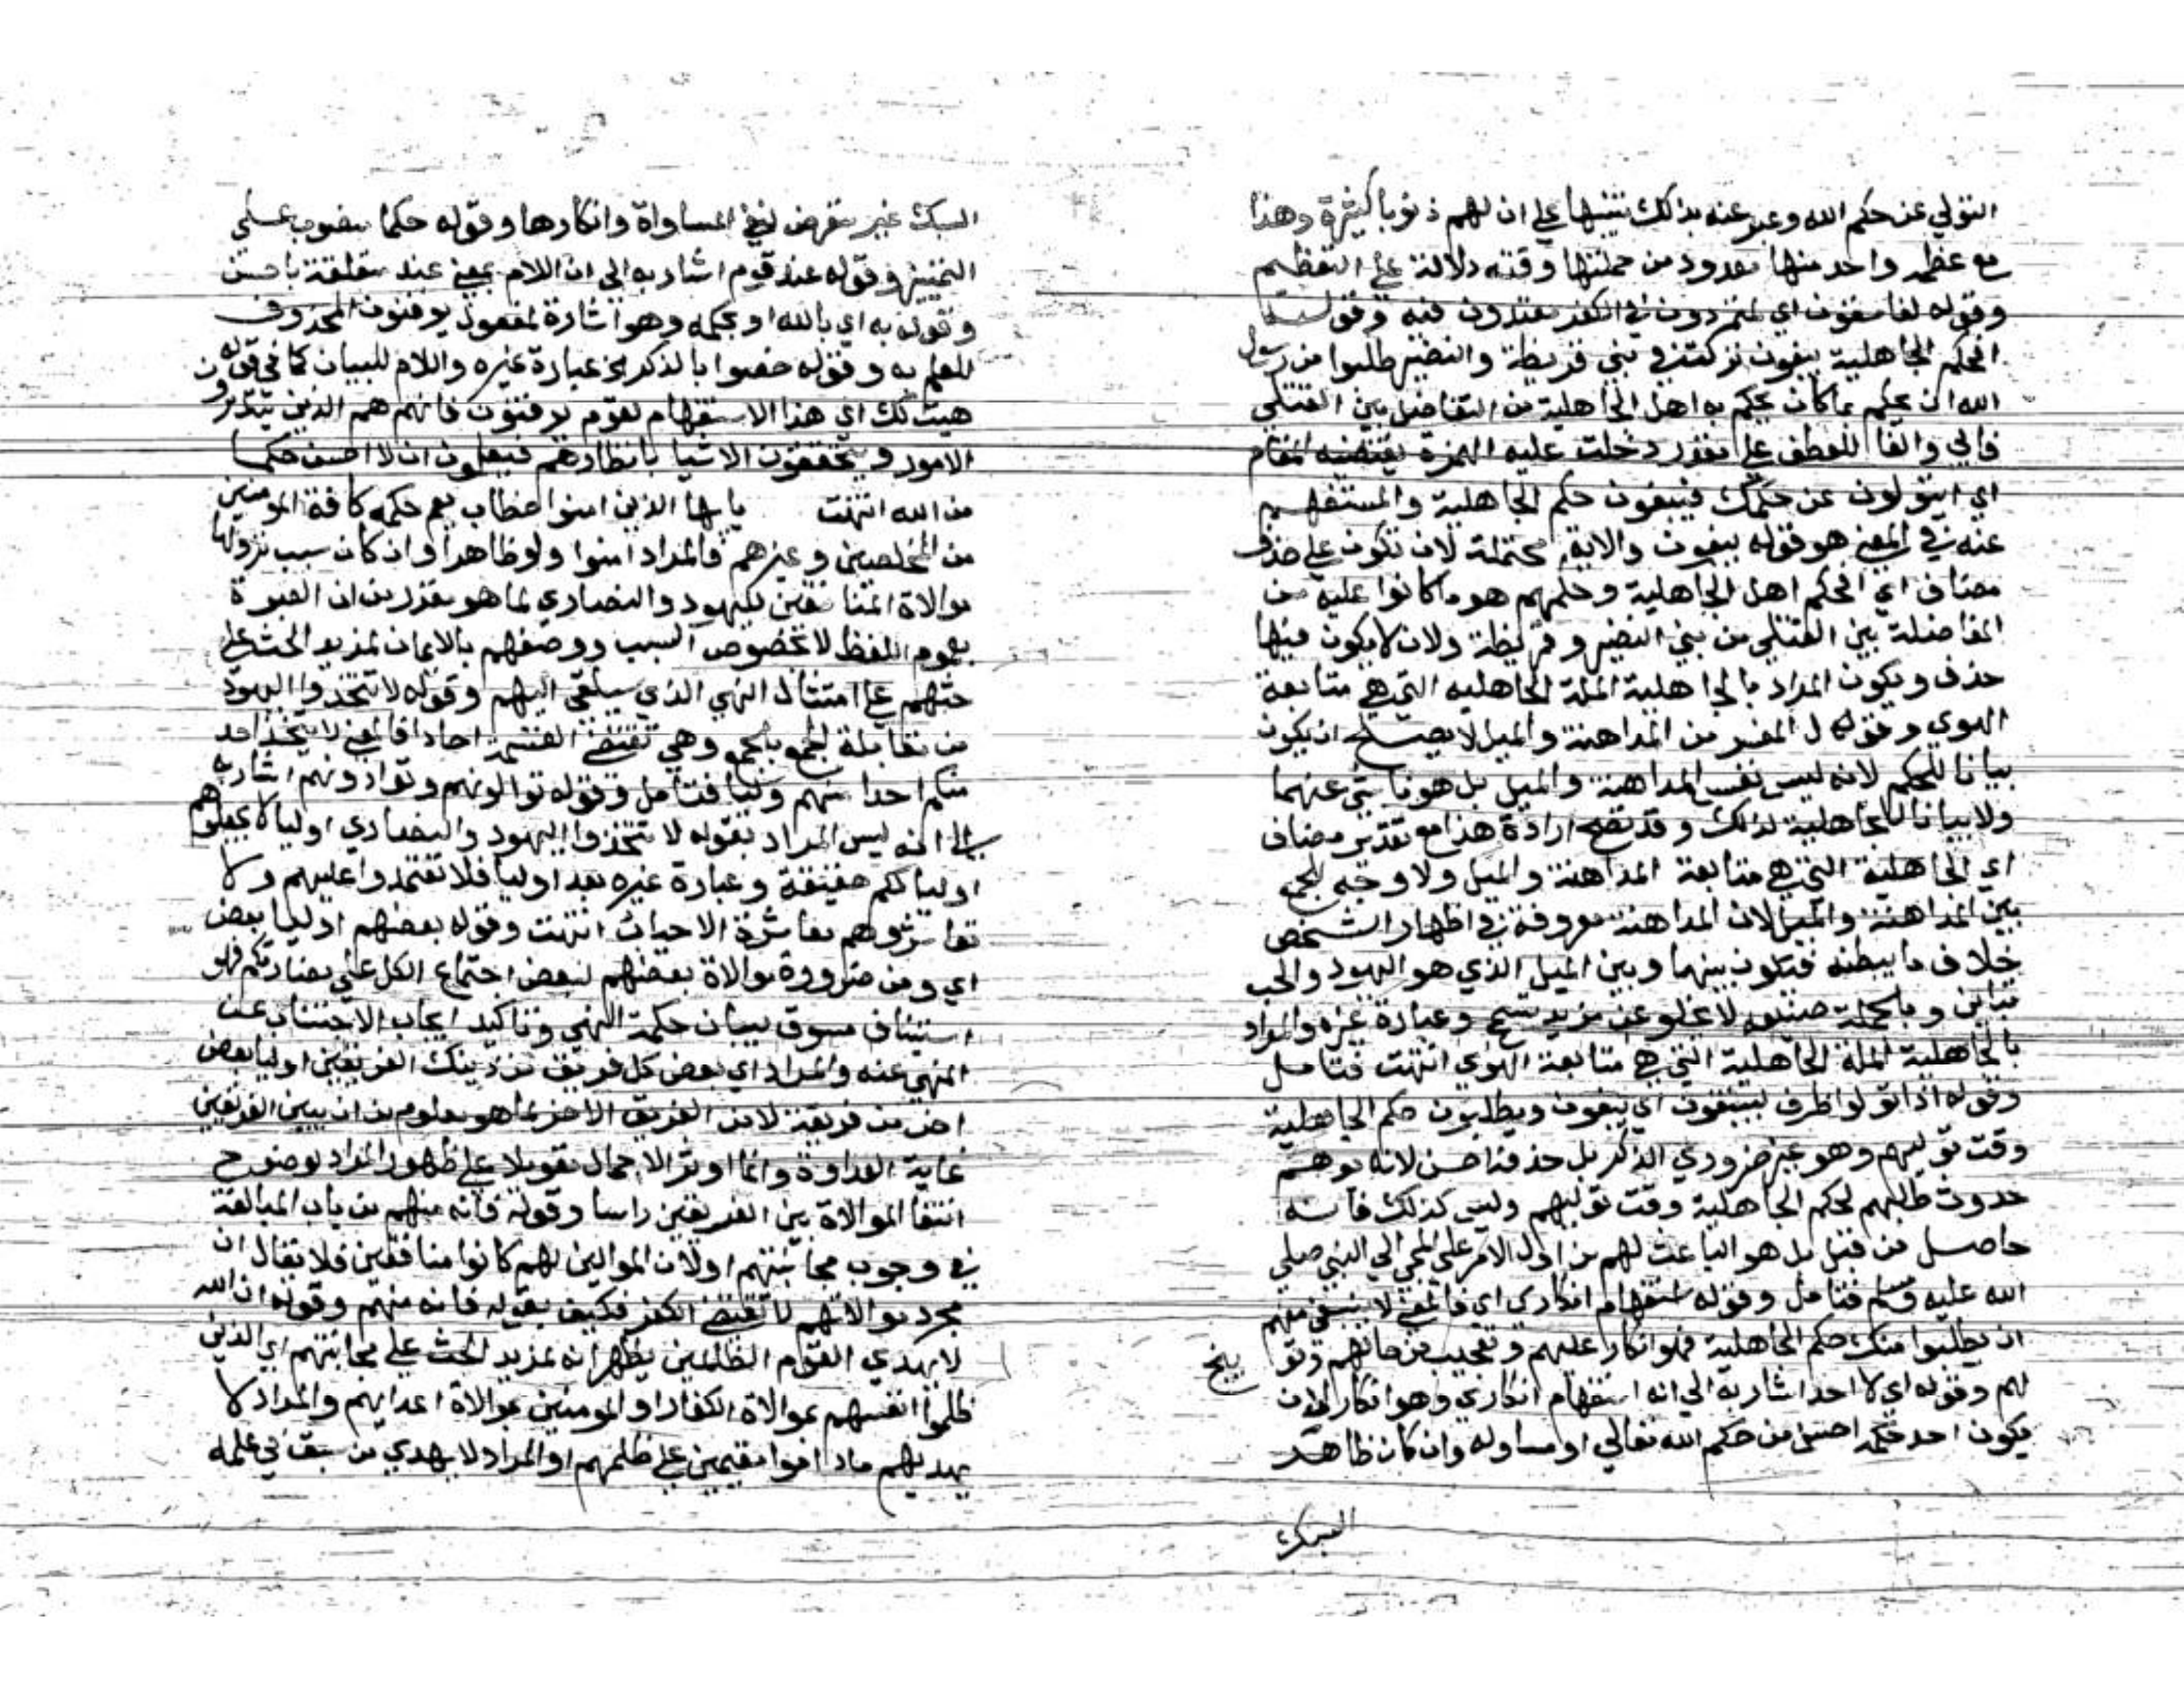 التولي عن حكم الله وعبر عنه بذلك تنبيها على ان لهم ذنوبا كثيرة وهذا
مع عظمه واحد منها معدود من جملتها وفيه دلالة على التعظيم
وقوله لفاسقون اي لمتمردون في الكفر معتدون فيه وقوله
افحكم الجاهلية يبغون نزلت في بني قريظة والنضير طلبوا من رسول
الله ان يحكم بما كان يحكم به اهل الجاهلية من التفاضل بين القتلى
والفا للعطف على مقدر دخلت عليه الهمزة يقتضيه المقام
اي ايتولون عن حكمك فيبغون حكم الجاهلية والمستفهم
عنه في المعنى هو قوله يبغون والاية محتملة لان تكون على حذف
مضاف اي افحكم اهل الجاهلية وحكمهم هو ما كانوا عليه من
المفاضلة بين القتلى من بني النضير وقريظة ولان لا يكون فيها
حذف ويكون المراد بالجاهلية الملة الجاهلية التي هي متابعة
الهوى وقول المفسر من المداهنة والميل لا يصلح ان يكون
بيانا للحكم لانه ليس نفس المداهنة والميل بل هو ناشئ عنهما
ولا بيانا للجاهلية لذلك وقد تصح ارادة هذا مع تقدير مضاف
اي الجاهلية التي هي متابعة المداهنة والميل ولا وجه للجمع
بين المداهنة والميل لان المداهنة معروفة في اظهار الشخص
خلاف ما يبطنه فيكون بينها وبين الميل الذي هو والحب
تباين وبالجملة لا يخلو عن مزيد وعبارة غيره والمراد
بالجاهلية الملة الجاهلية التي هي متابعة الهوى انتهت فتامل
وقوله اذا تولوا ظرف ليبغون اي يبغون ويطلبون حكم الجاهلية
وقت توليهم وهو غير ضروري الذكر بل حذفه احسن لانه يوهم
حدوث طلبهم لحكم الجاهلية وقت توليهم وليس كذلك فانه
حاصل من قبل بل هو الباعث لهم من اول الامر على المجي الى النبي صلى
الله عليه وسلم فتامل وقوله استفهام انكاري اي فالمعنى لا ينبغي منهم
ان يطلبوا منك حكم الجاهلية فهو انكار عليهم وتعجيب من حالهم وتو
بيخ
لهم وقوله اي لا احد اشار به الى انه استفهام انكاري وهو انكار لان
يكون احد حكمه احسن من حكم الله تعالى او مساو له وان كان ظاهر
السبك
السبك غير متعرض لنفي المساواة وانكارها وقوله حكما منصوب على
التمييز وقوله عند قوم اشار به الى ان اللام بمعنى عند متعلقة باحسن
وقوله به اي بالله او بحكمه وهو اشارة لمفعول يوقنون المحذوف
للعلم به وقوله خصوا بالذكر الخ عبارة غيره واللام للبيان كما في قوله
هيت لك اي هذا الاستفهام لقوم يوقنون فانهم هم الذين يتدبرون
الامور ويتحققون الاشيا بانظارهم فيعلمون ان لا احسن حكما
من الله انتهت يايها الذين امنوا خطاب يعم حكمه كافة المومنين
من المخلصين وغيرهم فالمراد امنوا ولو ظاهرا وان كان سبب نزولها
موالاة المنافقين لليهود والنصارى لما هو مقرر من ان العبرة
بعموم اللفظ لا بخصوص السبب ووصفهم بالايمان لمزيد الحث على
حثهم على امتثال النهي الذي سيلقى اليهم وقوله لا تتخذوا اليهود
من مقابلة الجمع بالجمع وهي تقتضي القسمة احادا فالمعنى لا يتخذ احد
منكم احدا منهم وليا فتامل وقوله توالونهم وتوادونهم اشار به
الى انه ليس المراد بقوله لا تتخذوا اليهود والنصارى اوليا لا تجعلوهم
اوليا لكم حقيقة وعبارة غيره بعد اوليا فلا تعتمدوا عليهم ولا
تعاشروهم معاشرة الاحباب انتهت وقوله بعضهم اوليا بعض
اي ومن ضرورة موالاة بعضهم لبعض اجتماع الكل على مضادتكم فهو
استيناف مسوق لبيان حكمة النهي وتاكيد ايجاب الاجتناب عن
المنهي عنه والمراد اي بعض كل فريق من ذينك الفريقين اوليا بعض
اخر من فريقه لا من الفريق الاخر لما هو معلوم من ان بين الفريقين
غاية العداوة وانما اوثر الاجمال تعويلا على ظهور المراد لوضوح
انتفا الموالاة بين الفريقين راسا وقوله فانه منهم من باب المبالغة
في وجوب مجانبتهم او لان الموالين لهم كانوا منافقين فلا يقال ان
مجرد موالاتهم لا تقتضي الكفر فكيف يقوله فانه منهم وقوله ان الله
لا يهدي القوم الظلمين يظهر انه لمزيد الحث على مجانبتهم اي الذين
ظلموا انفسهم بموالاة الكفار او المومنين بموالاة اعدايهم والمراد لا
يهديهم ماداموا مقيمين على ظلمهم او المراد لا يهدي من سبق في علمه